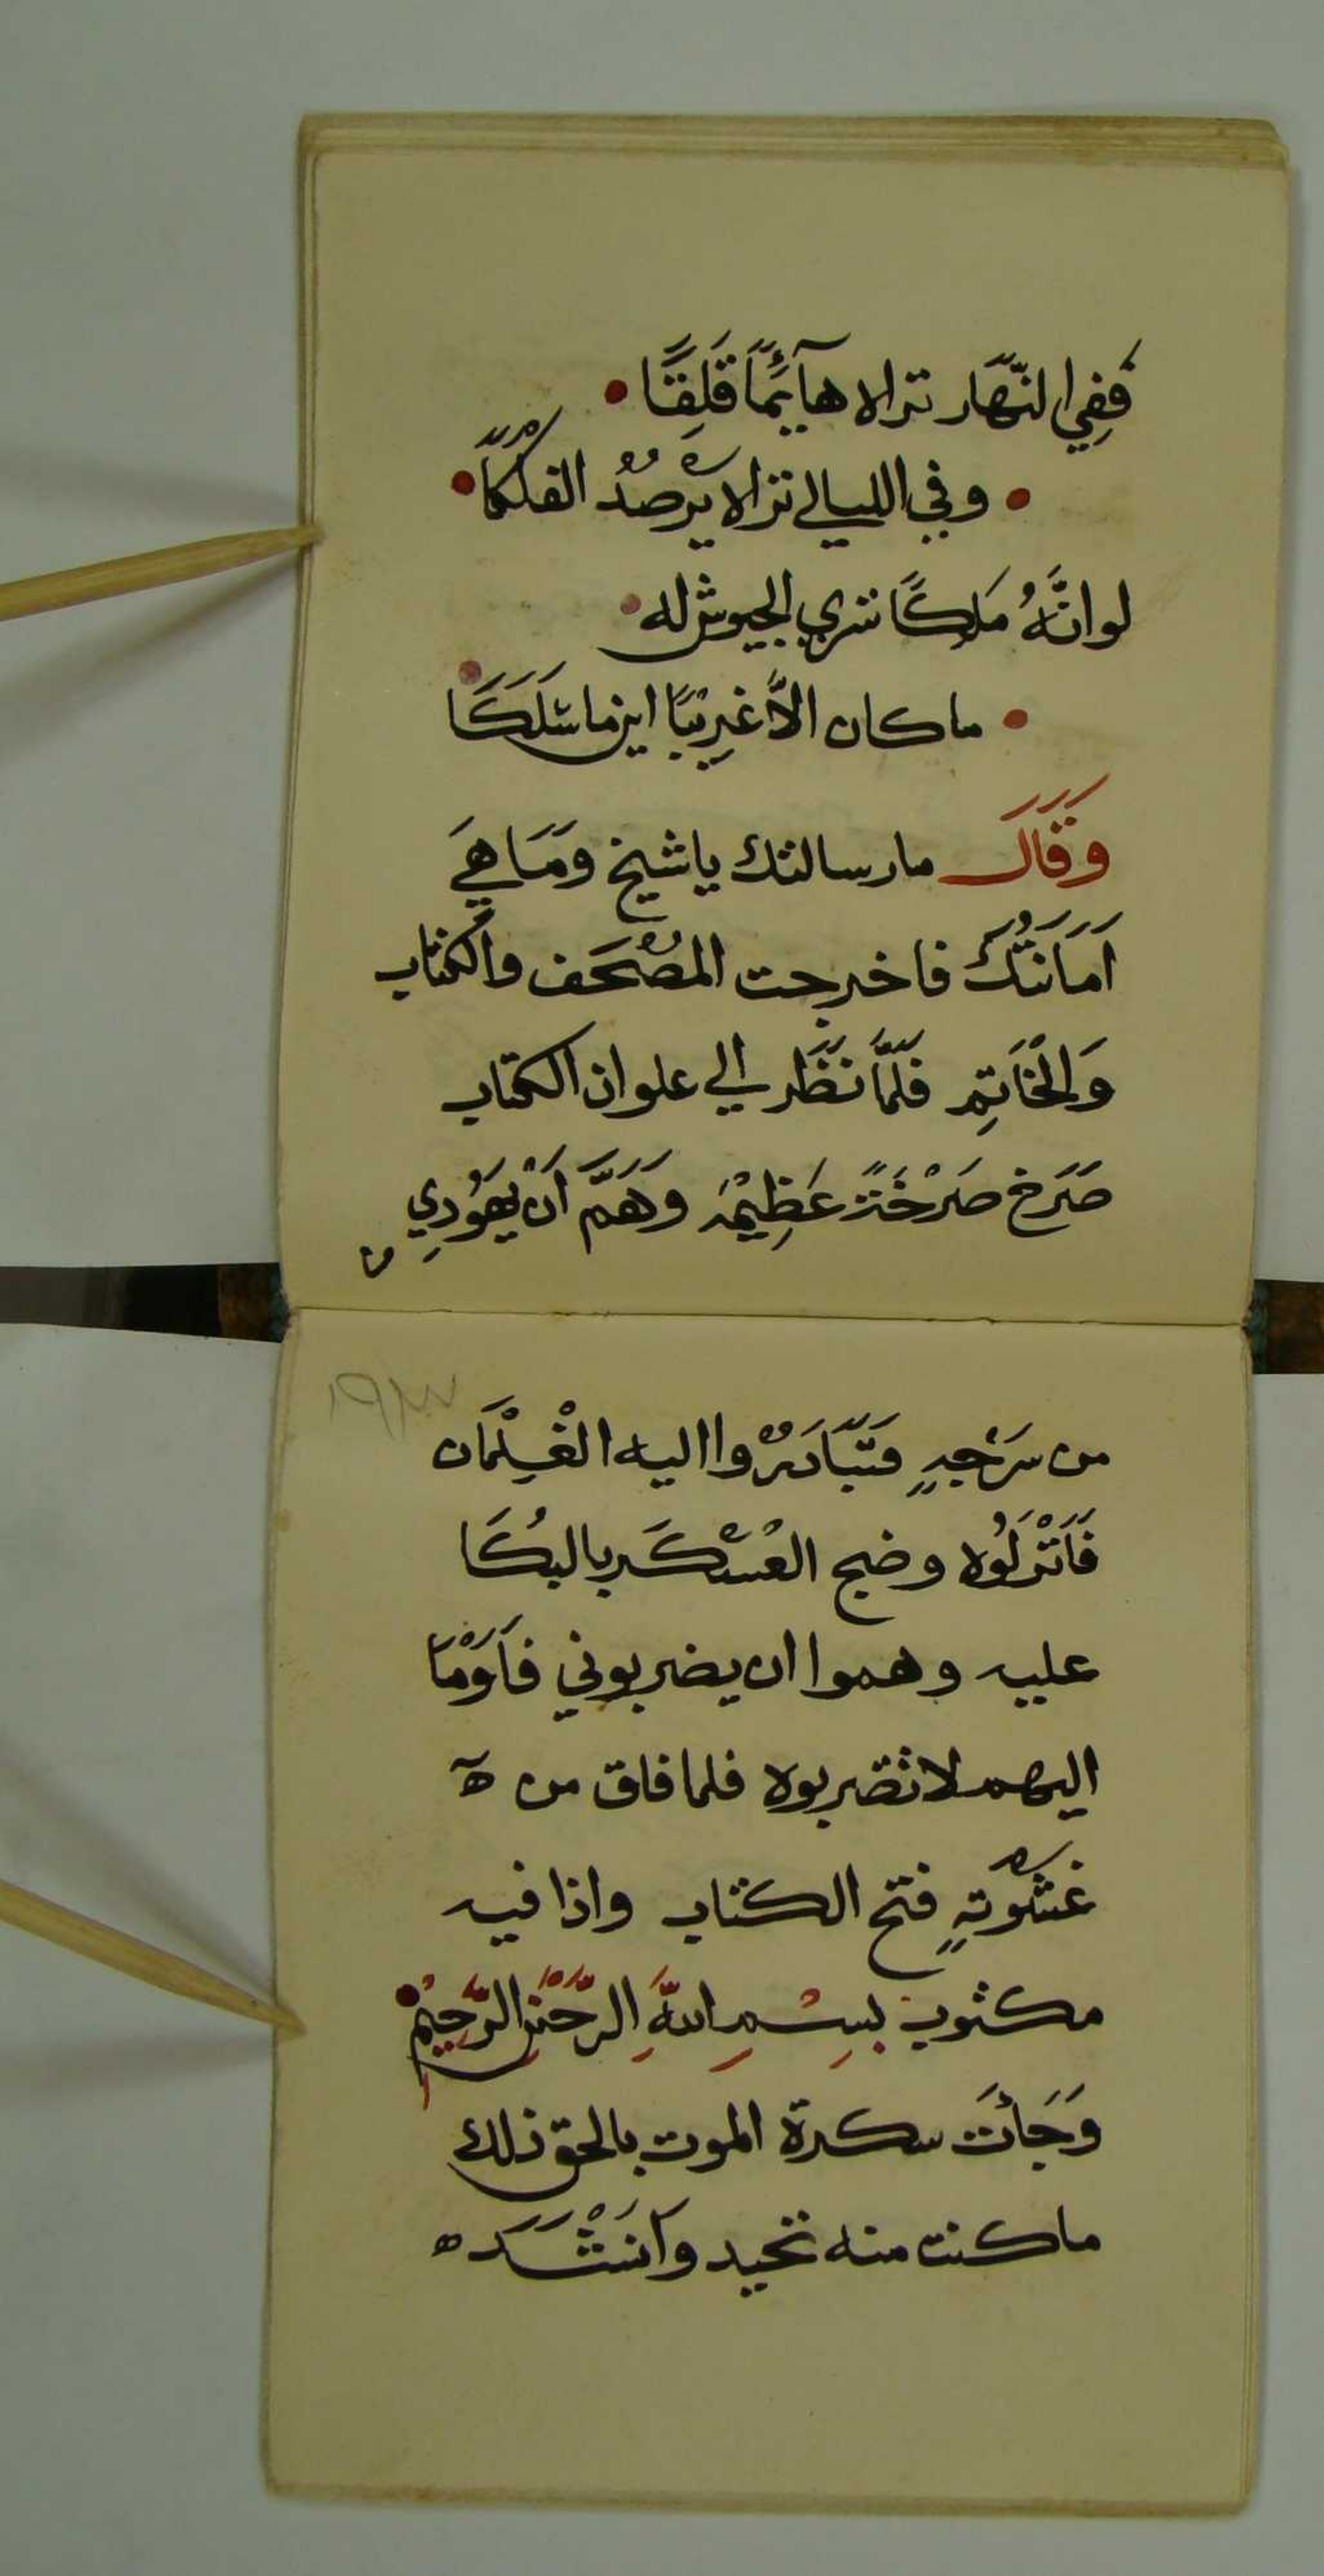 فَفِي النَّهَار تراه هآئِمًا قَلِقًا •
• وفي الليالي تراه يَرْصُدُ الفلكَا •
لو انَّهُ مَلِكًا تسري الجيوش له •
• ما كان الاَّ غَرِيْبًا اينما سَلَكَا
وَقَالَ ما رسالتك يا شيخ وَمَا هِيَ
اَمَانَتُكَ فاخرجت المُصْحَف والكتاب
وَالخَاتِم فَلَمَّا نَظَر الي علوان الكتاب
صَرَخ صَرْخَةً عَظِيْمَه وَهَمَّ اَنْ يَهُوْدِي
من سَرْجِهِ فتَبَادَرُوْا اليه الْغِلْمَان
فَاَنْزَلُوْه وضج العَسْكَر بالبُكَا
عليه وهموا ان يضربوني فَاَوْمَا
اليهم لا تضربوه فلما فاق من ه
غَشْوَتِهِ فتح الكتاب واذا فيه
مكتوب بِسْمِ اللَّهِ الرَّحْمَنِ الرَّحِيْمِ •
وَجَائَت سكرة الموت بالحق ذلك
ما كنت منه تحيد وَاَنْشَدَ ه